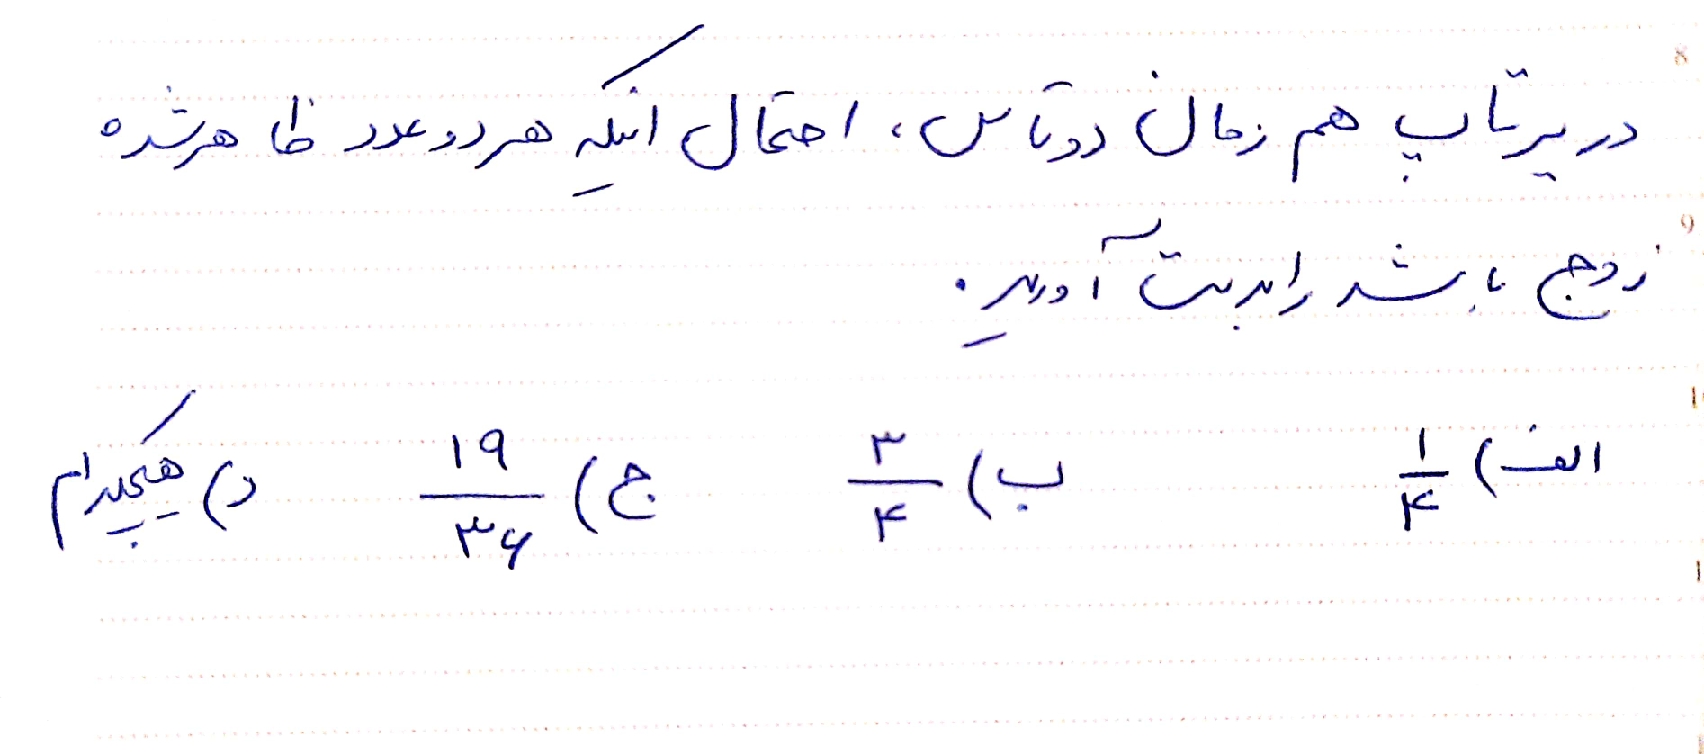 در پرتاپ هم زمان دو تاس، احتمال اینکه هر دو عدد ظاهر شده
زوج باشد را بدست آورید.
الف) ۱/۴ ب) ۳/۴ ج) ۱۹/۳۶ د) هیچکدام